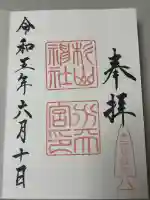 奉拝
杉山
神社
令和五年六月十日